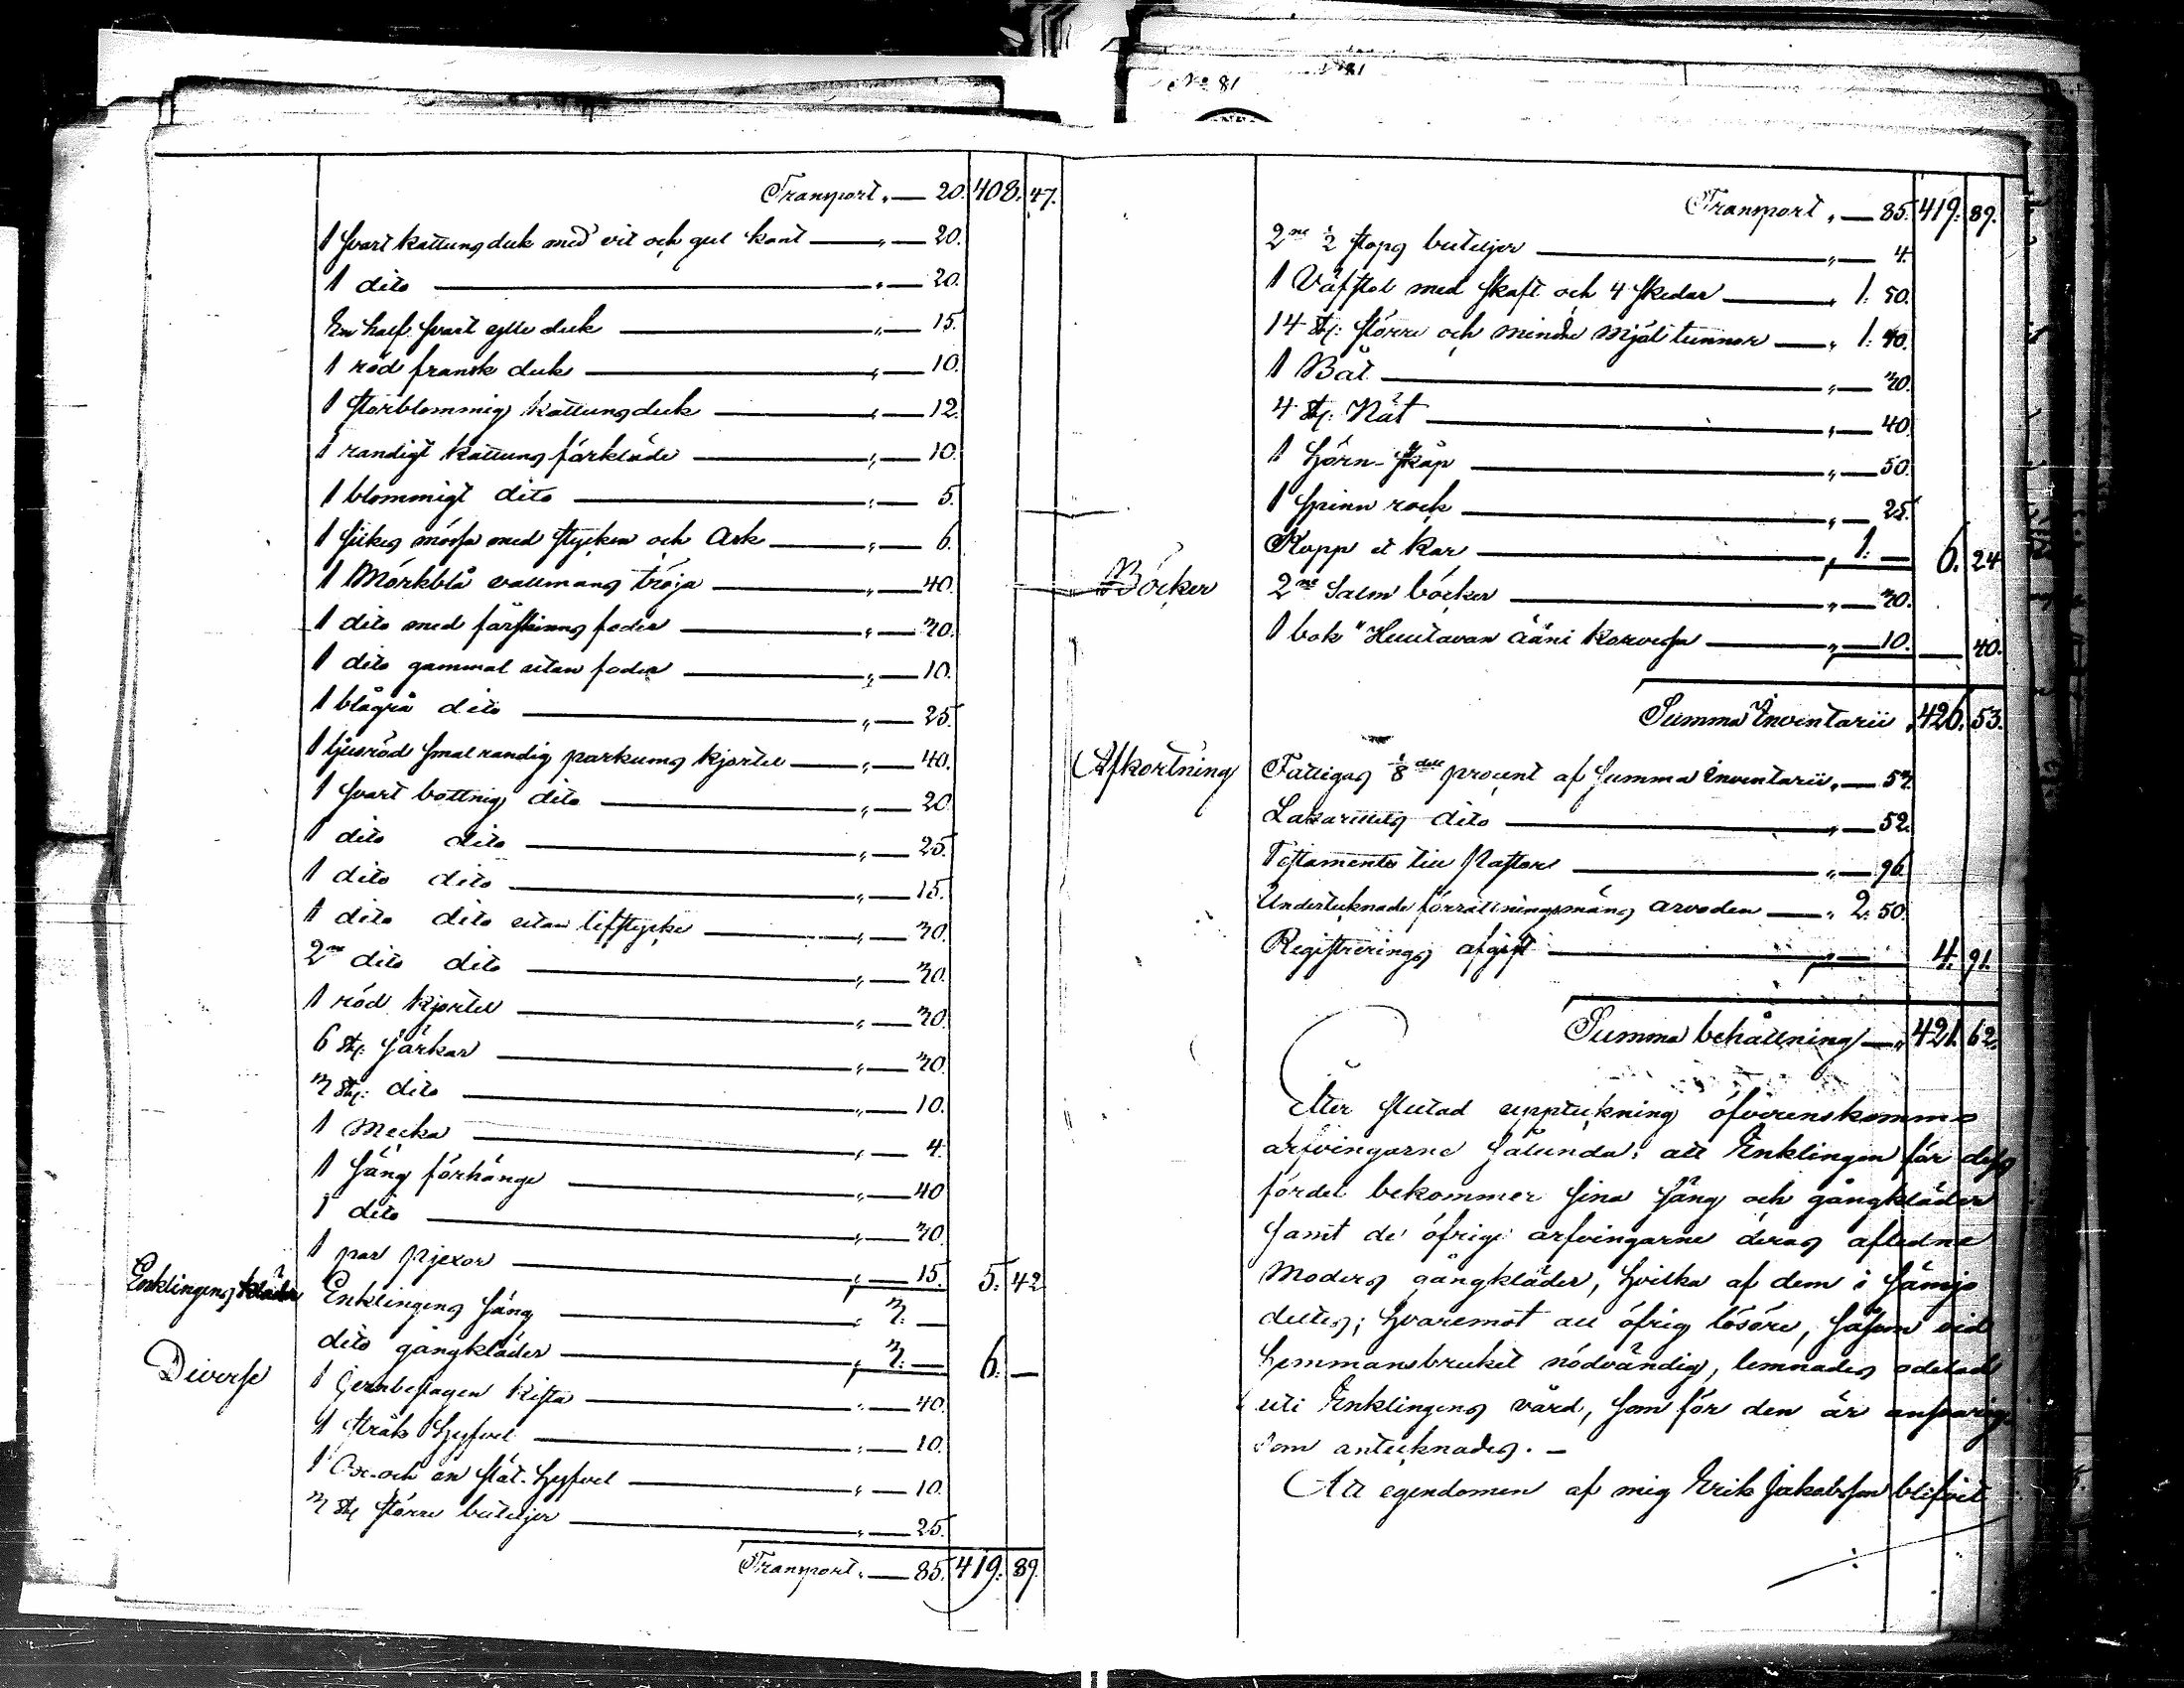 No 81
Transport " — 20. 408. 47.
1 svart kattuns duk med vit och gul kant — " — 20.
1 dito — " — 20.
En half svart ylle duk — " — 15.
1 röd fransk duk — " — 10.
1 storblommig kattunsduk — " — 12.
1 randigt kattuns förkläde — " — 10.
1 blommigt dito — " — 5.
1 silkes mössa med stycken och Ask — " — 6.
1 Mörkblå vallmans tröja — " — 40.
1 dito med fårskinns foder — " — 30.
1 dito gammal utan foder — " — 10.
1 blågrå dito — " — 25.
1 ljusröd smalrandig parkums kjortel — " — 40.
1 svart bottnig dito — " — 20.
1 dito dito — " — 25.
1 dito dito — " — 15.
1 dito dito utan lifstycke — " — 30.
2ne dito dito — " — 30.
1 röd kjortel — " — 30.
6 st: särkar — " — 30.
3 st: dito — " — 10.
1 Mecka — " — 4.
1 säng förhänge — " — 40
1 dito — " — 30.
1 par pjexor — " — 15. 5. 42
Enklingens kläder Enklingens säng — " 3. —
dito gångkläder — " 3. — 6. —
Diverse 1 Jernbeslagen kista — " — 40.
1 stråk hyfvel — " — 10.
1 Ox- och en slät-hyfvel — " — 10.
3 st större buteljer — " — 25.
Transport " — 85. 419. 89.
Transport " — 85. 419. 89.
2ne ½ stops buteljer — " — 4.
1 Väfstol med skaft och 4 skedar — " 1. 50.
14 st: större och mindre mjöl tunnor — " 1. 40.
1 Båt — " — 30.
4 st: Nät — " — 40.
1 Hörn-skåp — " — 50.
1 Spinn rock — " — 25.
Kopp et kar — " 1. — 6. 24
Böcker 2ne Salm böcker — " — 30.
1 bok "Huutavan ääni korvessa — " — 10. — 40.
Summa Inventarii " 426. 53.
Afkortning Fattigas ⅛del procent af Summa Inventarii " — 53.
Lasarettets dito — " — 52.
Testamente till Pastor — " — 96.
Undertecknade förrättningsmäns arvoden — " 2. 50.
Registrerings afgift — " — 4. 91.
Summa behållning — " 421. 62.
Efter slutad uppteckning öfverenskommo
arfvingarne sålunda: att Enklingen för dess
fördel bekommer sina säng och gångkläder
samt de öfrige arfvingarne deras aflidne
Moders gångkläder, hvilka af dem i sämjo
deltes; hvaremot all öfrig lösöre, såsom vid
hemmansbruket nödvändig, lemnades odelad
uti Enklingens vård, som för den är ansvarig
som antecknades. —
Att egendomen af mig Erik Jakobsson blifvit